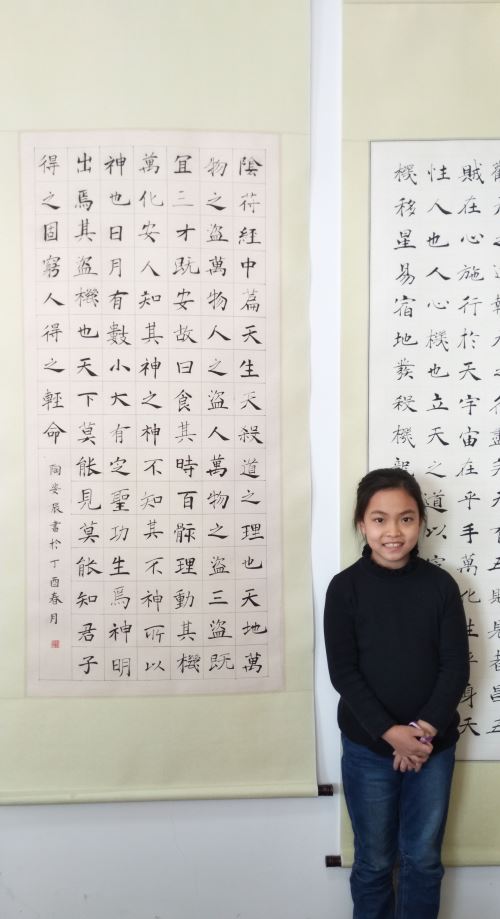 陰符經中篇天生天殺道之理也天地萬
物之盜萬物人之盜人萬物之盜三盜既
宜三才既安故曰食其時百骸理動其機
萬化安人知其神之神不知其不神所以
神也日月有數小大有定聖功生焉神明
出焉其盜機也天下莫能見莫能知君子
得之固窮人得之輕命
陶姿辰書於丁酉春月
五賊見者昌五
賊在心施行於天宇宙在乎手萬化生乎身天
性人也人心機也立天之道以定
機移星易宿地發殺機龍